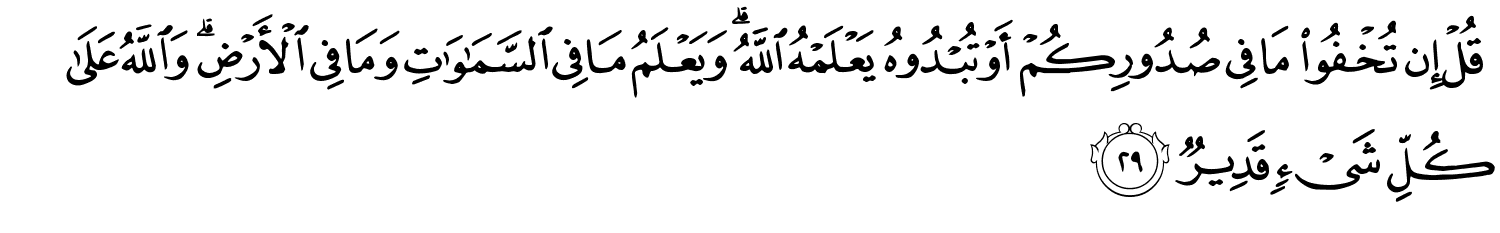 قُلْ إِن تُخْفُوا۟ مَا فِى صُدُورِكُمْ أَوْ تُبْدُوهُ يَعْلَمْهُ ٱللَّهُ ۗ وَيَعْلَمُ مَا فِى ٱلسَّمَـٰوَٰتِ وَمَا فِى ٱلْأَرْضِ ۗ وَٱللَّهُ عَلَىٰ
كُلِّ شَىْءٍ قَدِيرٌ ٢٩